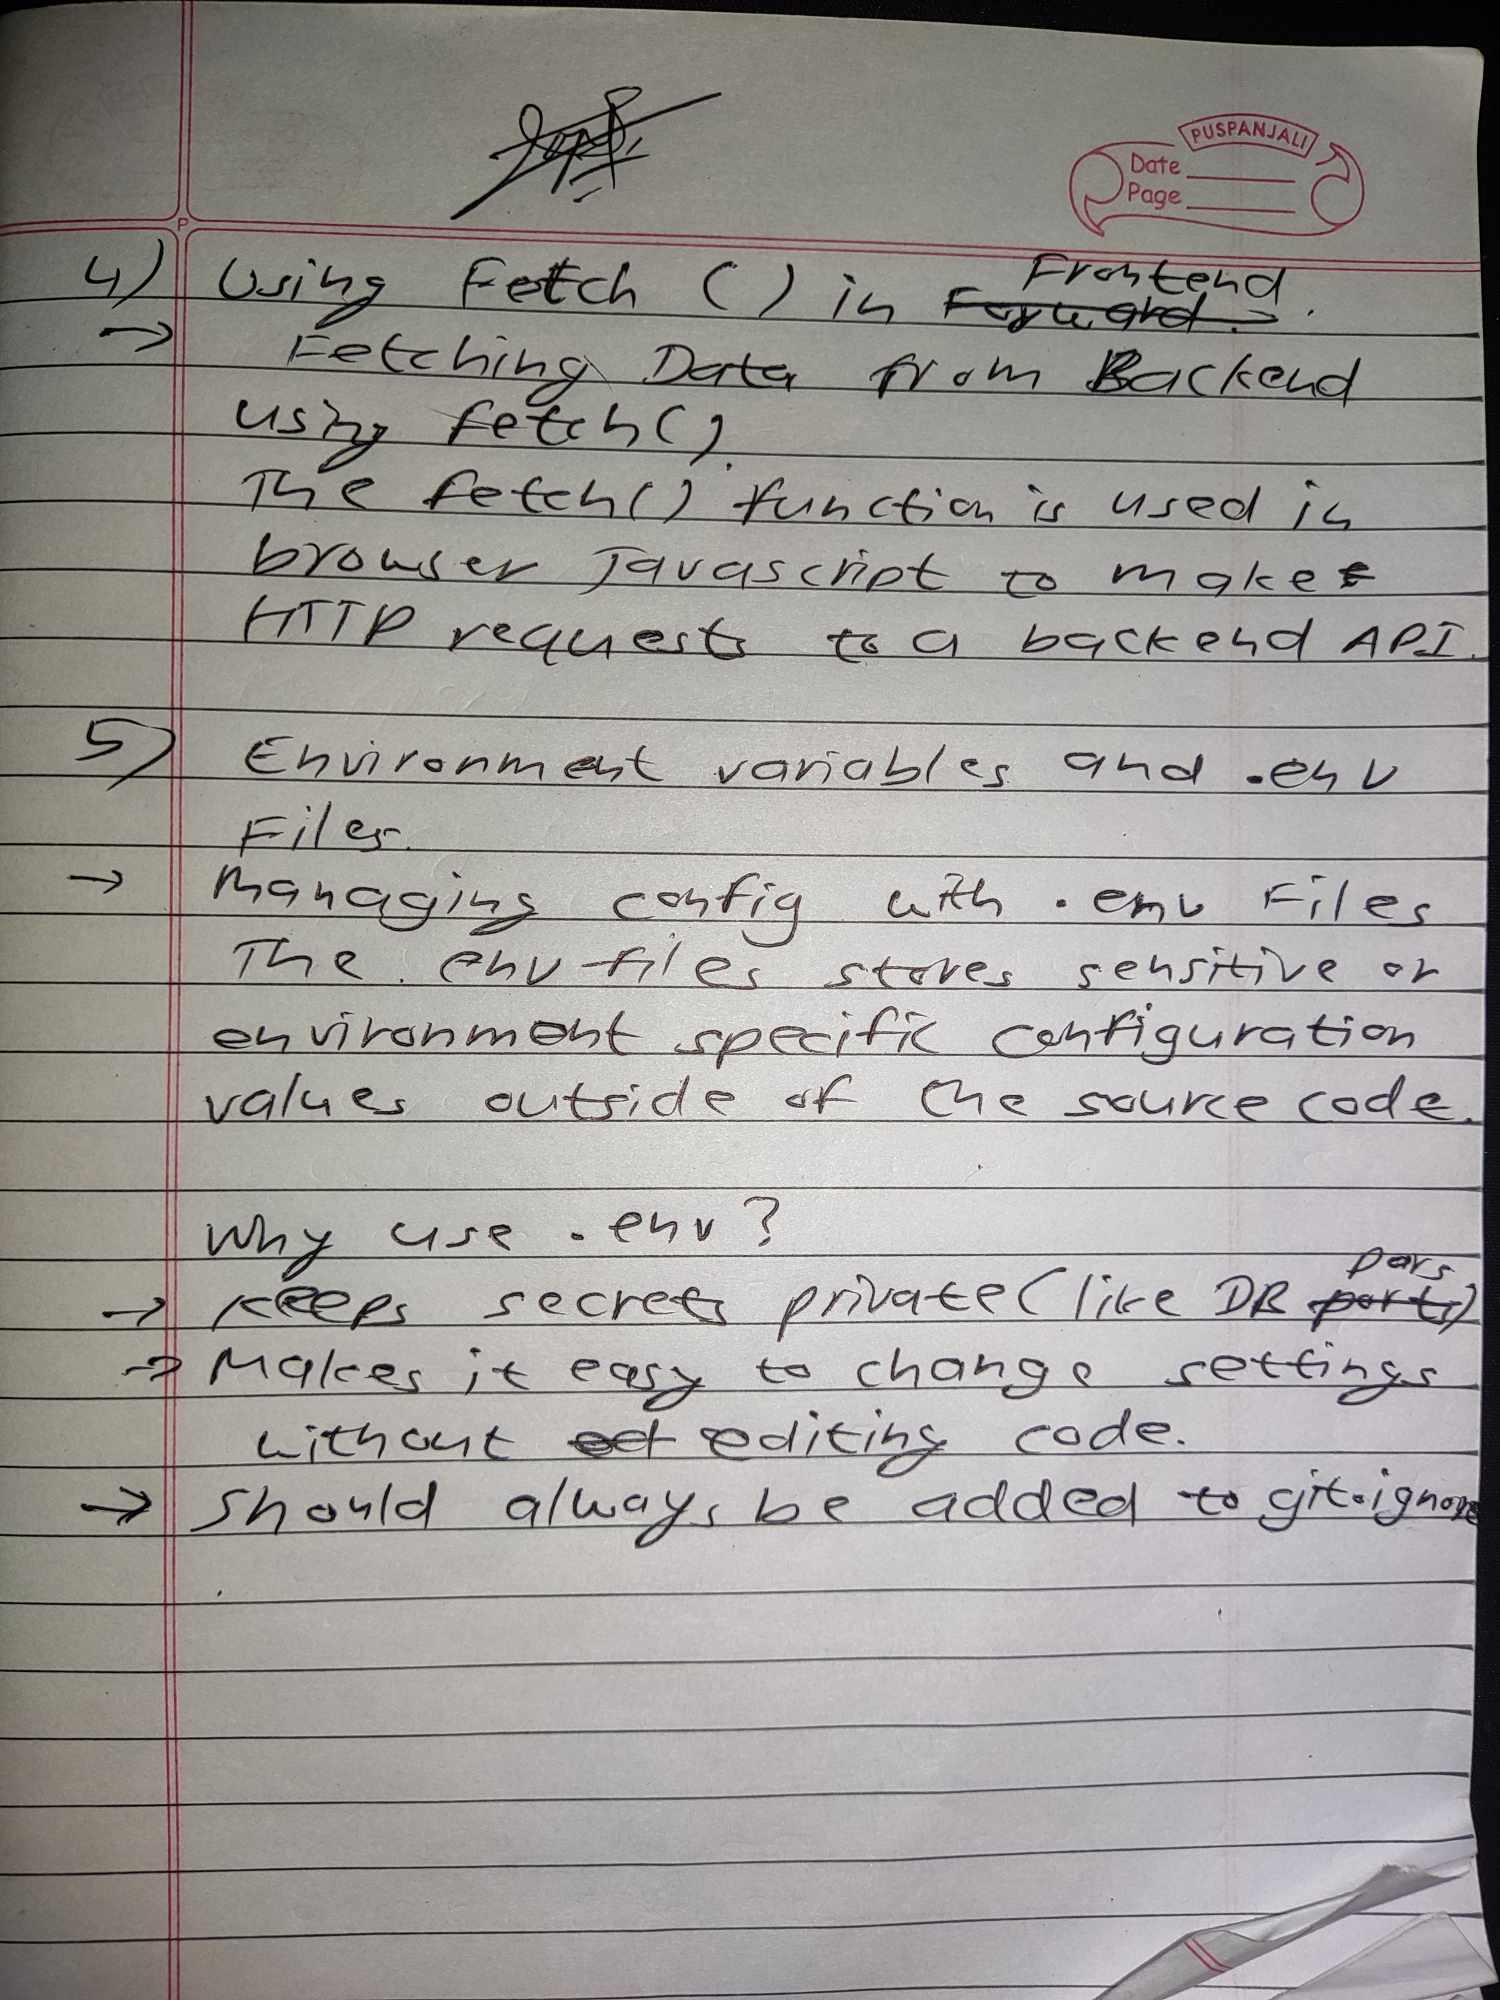 PUSPANJALI
Date
Page
P
4) Using Fetch () in Frontend
Forward.
→ Fetching Data from Backend
using fetch().
The fetch() function is used in
browser Javascript to make
HTTP requests to a backend API.
5) Environment variables and .env
Files.
→ Managing config with .env Files
The .env files stores sensitive or
environment specific configuration
values outside of the source code.
Why use .env?
→ Keeps secrets private (like DB pars
ports)
→ Makes it easy to change settings
without editing code.
→ Should always be added to git.ignore